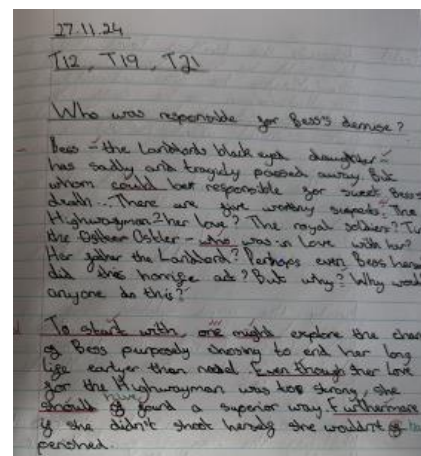 27.11.24
T12, T19, T21
Who was responsible for Bess's demise?
Bess - the Landlords black eyed daughter -
has sadly and tragicly passed away. But
whom could be responsible for sweet Bess's
death... There are five worthy suspects. The
Highwayman - her love? The royal soldiers?
the Ostler - who was in love with her?
Her father the Landlord? Perhaps even Bess
did this horrific act? But why? Why would
anyone do this?
To start with, one might explore the
of Bess purposly chosing to end her long
life earlyer than need. Even though her love
for the Highwayman was too strong, she
should have of found a superior way. Furthermore
if she didn't shoot herself she wouldn't of
perished.